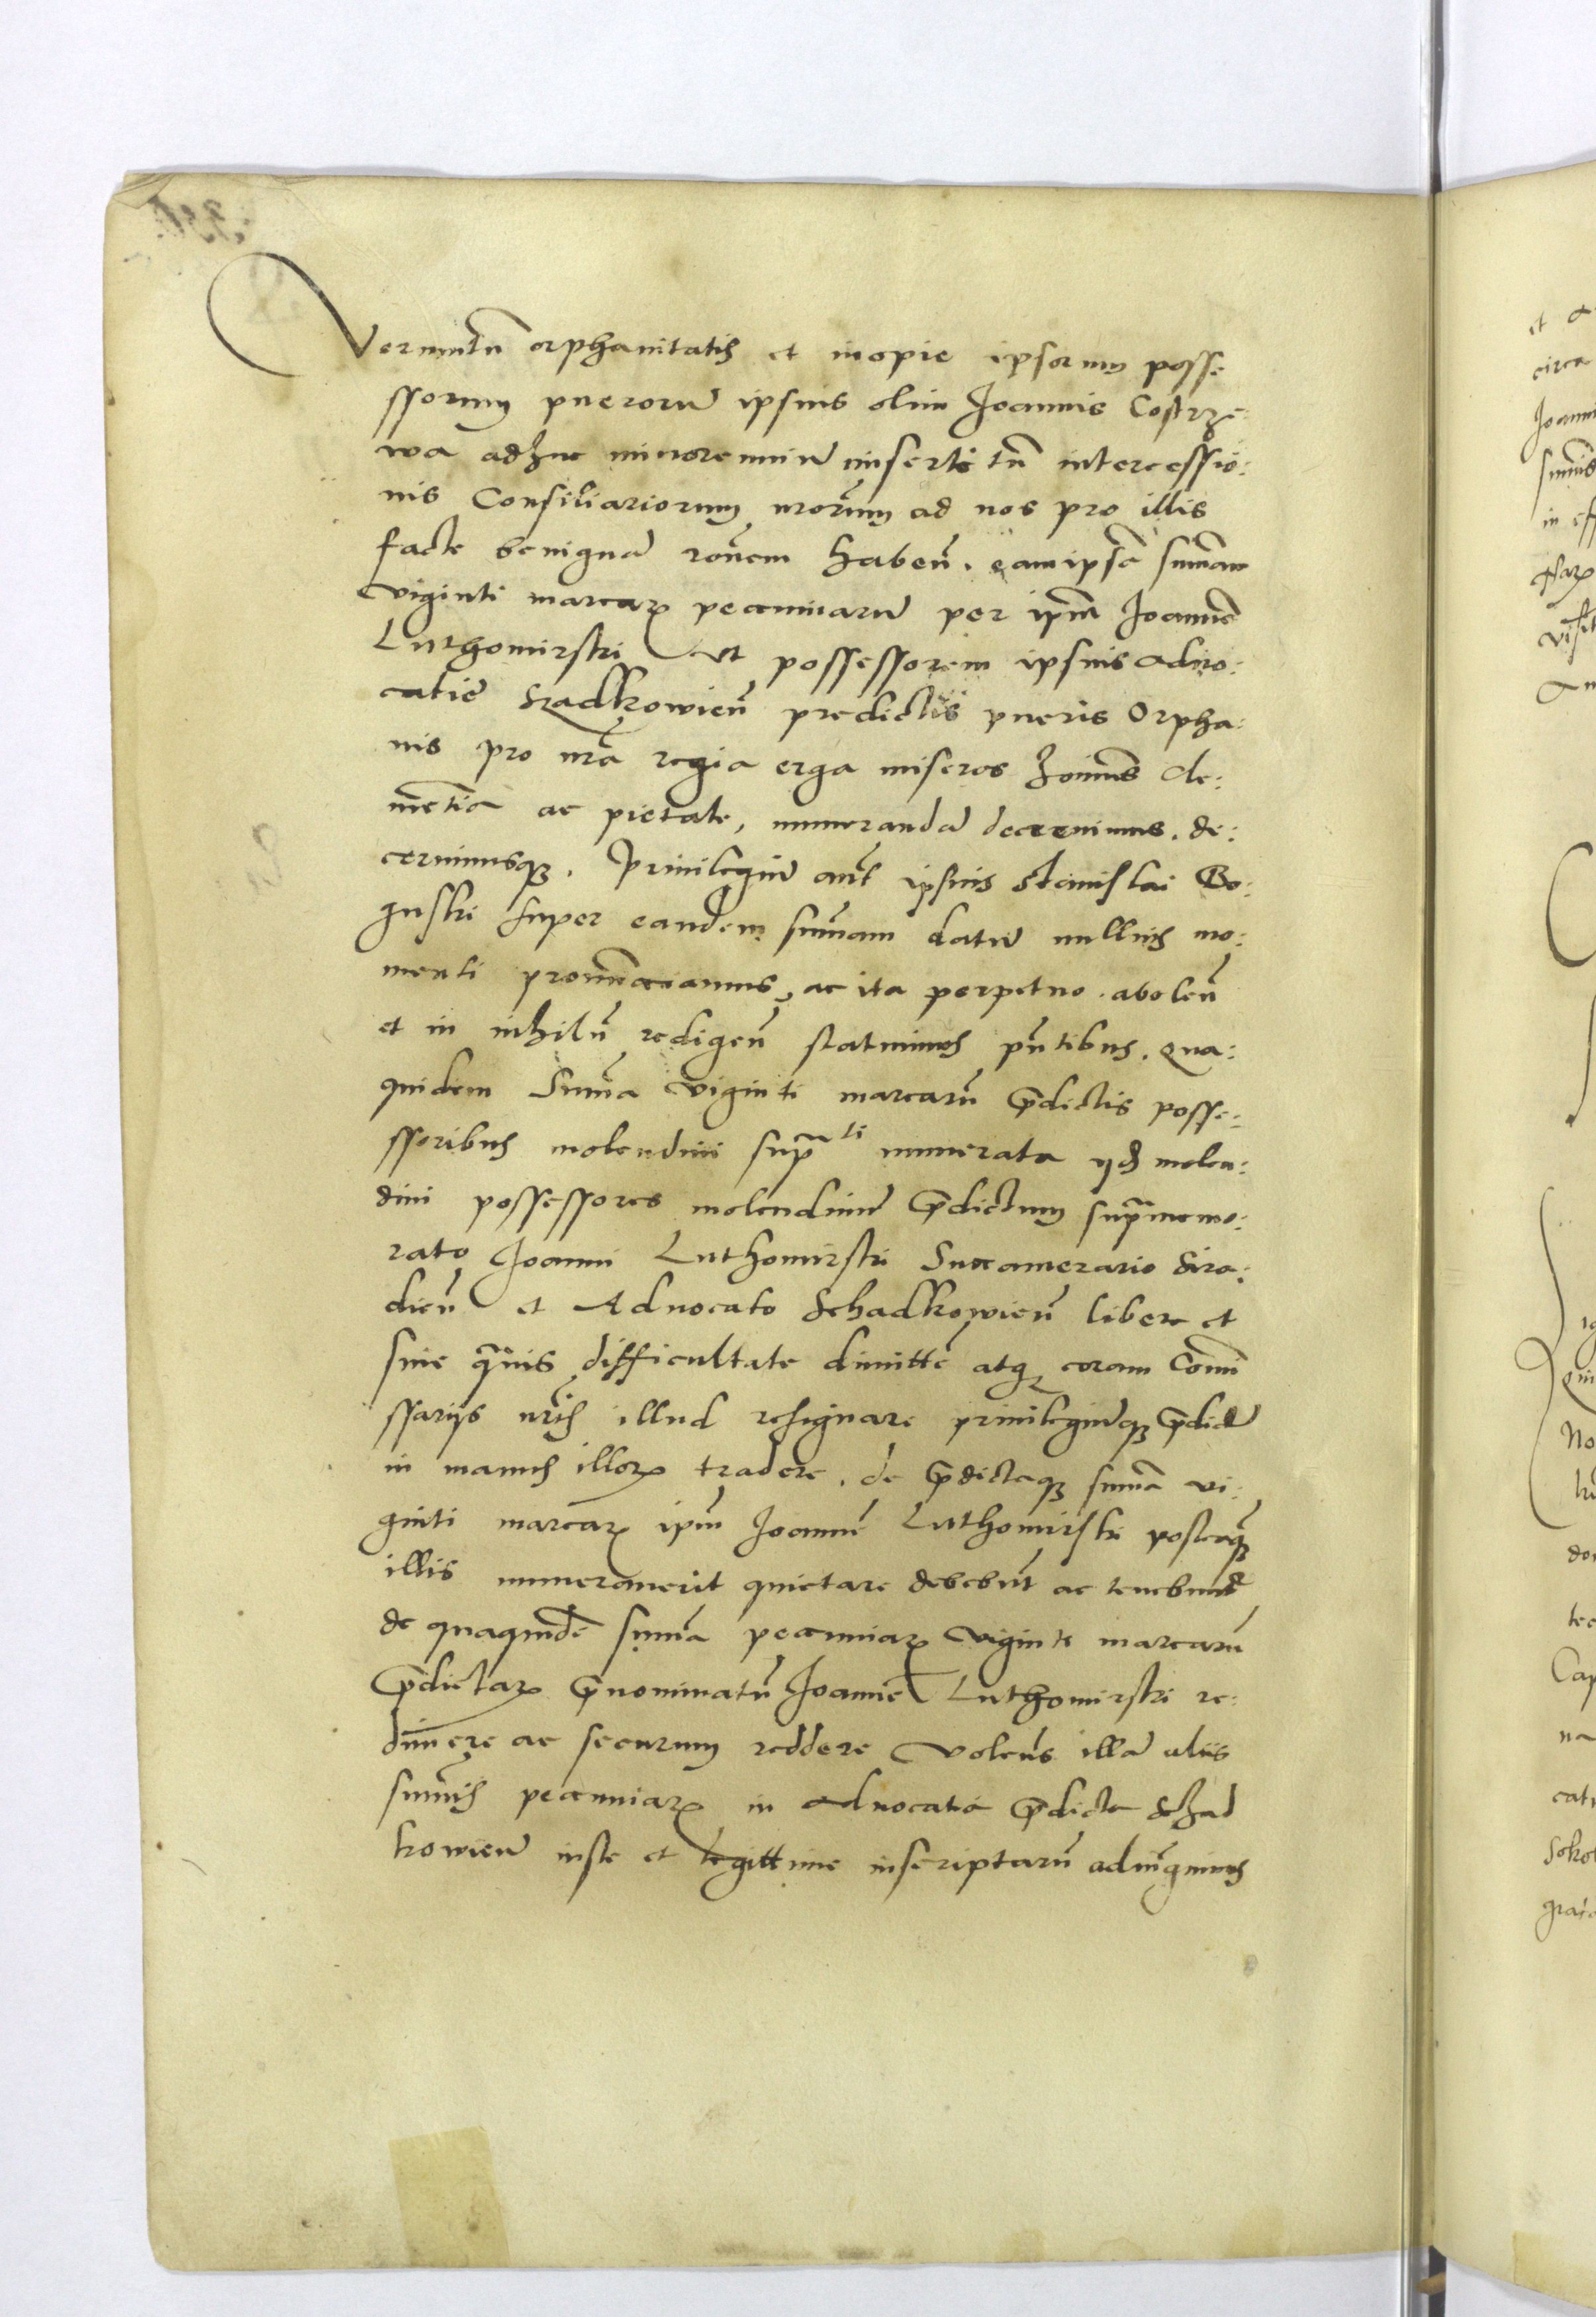 Verumtn̄ orphanitatis et inopie ipsorum posse
ssorum puerorū ipsius olim Joannis Costrze:
wa adhuc minorenniū miserti tn̄ intercessio:
nis Consiliariorum nrorum ad nos pro illis
facte benignā ronem haben̄. eam ipsā summam
viginti marcarꝝ pecuniarū per ipm̄ Joannē
Luthomirski ut possessorem ipsius aduo:
catie Szadkowien̄ predictis pueris Orpha:
nis pro nrā regia erga miseros hoīnes cle:
mētia ac pietate, numerandā decreuimus. de:
cernimusqꝫ. Priuilegiū aut̄ ipsius Stanislai Bo:
guski super eandem summam datū nullius mo:
menti pronūciamus, ac ita perpetuo abolen̄
et in nihilū redigen̄ statuimus pn̄tibus. Qua:
quidem Summa viginti marcarū p̄dictis posse:
ssoribus molendini supra^ti numerata ijd molen:
dini possessores molendinū p̄dictum supramemo:
rato Joanni Luthomirski Succamerario Sira:
dien̄ et Aduocato Schadkowien̄ libere et
sine quauis difficultate dimittē atqꝫ coram Com̄i
ssarijs nris illud resignare priuilegiūqꝫ p̄dictū
in manus illorꝝ tradere. de p̄dictaqꝫ summa vi:
ginti marcarꝝ ipm̄ Joannē Luthomirski posteaquā
illis numerauerit quietare debebūt ac tenebunt̄
de quaquidē summa pecuniarꝝ viginti marcarū
p̄dictarꝝ p̄nominatū Joannē Luthomirski re:
dimere ac securum reddere volen̄s illā aliis
sum̄is pecuniarꝝ in aduocatia p̄dicta Schad
kowien̄ iuste et legittime inscriptarū adiūgimus